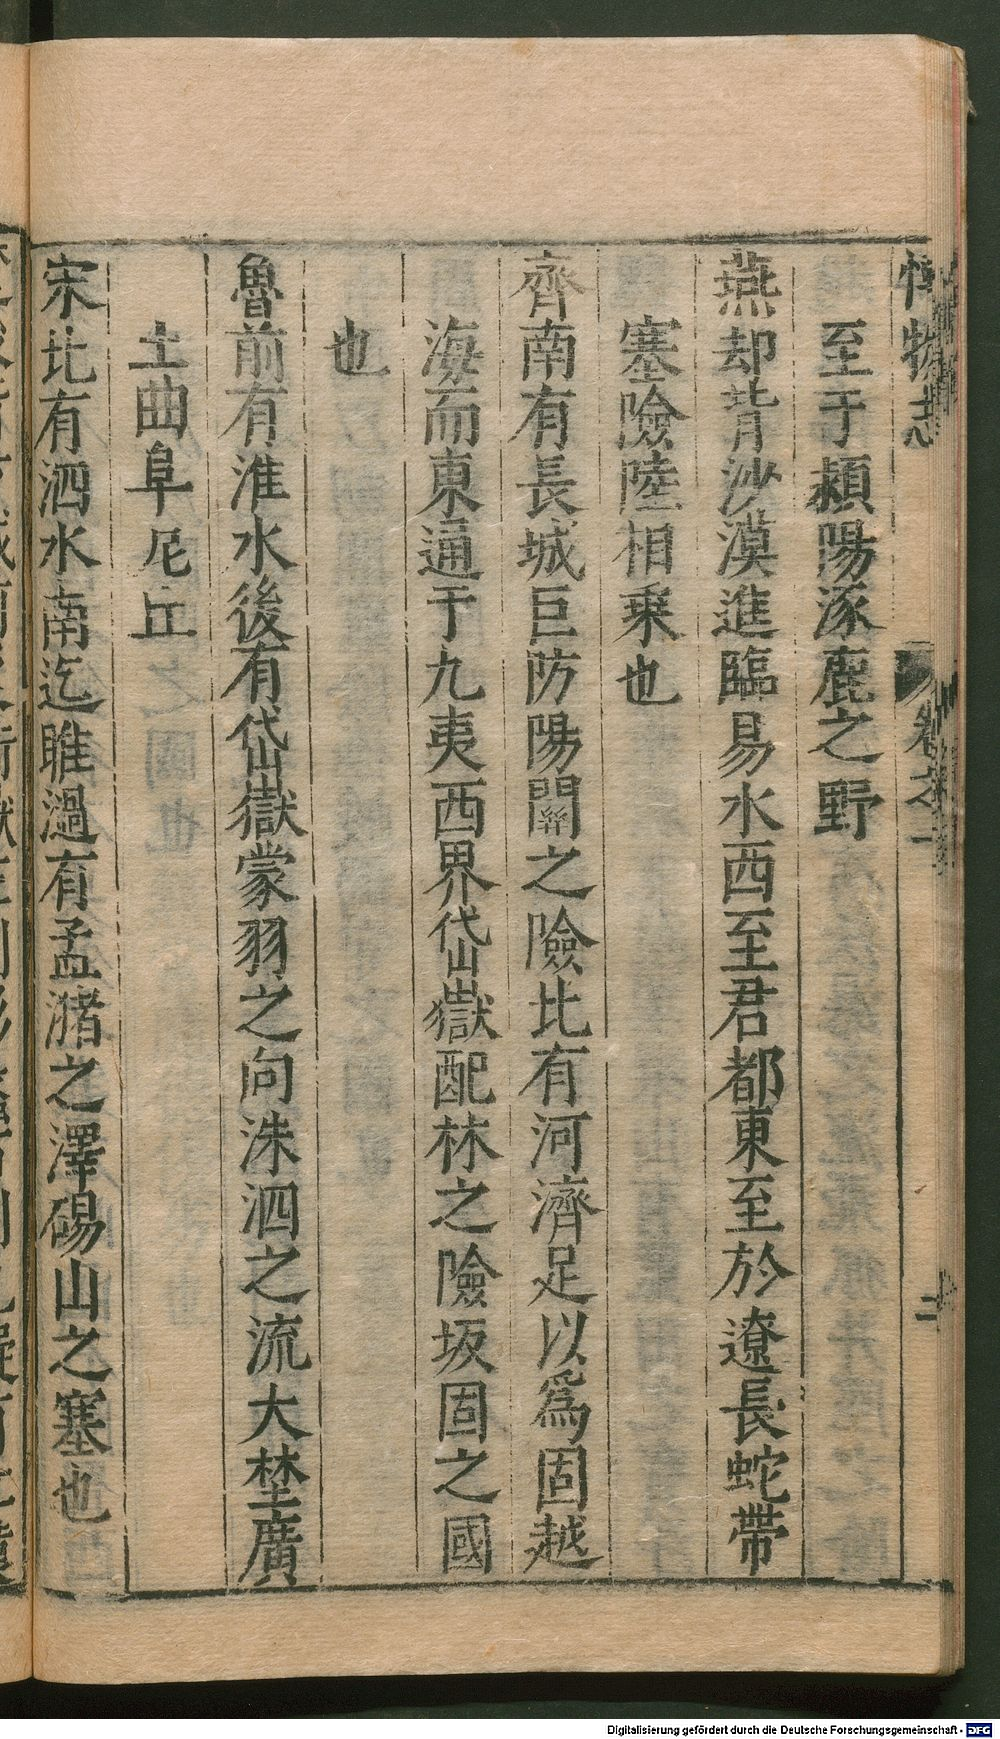 博物志 卷之一 二
至于潁陽涿鹿之野
燕却背沙漠進臨易水西至君都東至於遼長蛇帶
塞險陸相乗也
齊南有長城巨防陽關之險北有河濟足以爲固越
海而東通于九夷西界岱嶽配林之險坂固之國
也
魯前有淮水後有岱嶽蒙羽之向洙泗之流大埜廣
土曲阜尼丘
宋北有泗水南迄睢濄有孟潴之澤碭山之塞也
Digitalisierung gefördert durch die Deutsche Forschungsgemeinschaft - DFG